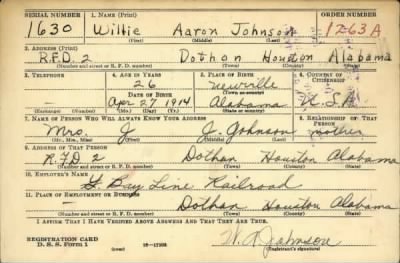 SERIAL NUMBER 1. NAME (Print) ORDER NUMBER
1630 Willie Aaron Johnson 1263A
(First) (Middle) (Last)
2. ADDRESS (Print)
R.F.D. 2 Dothan Houston Alabama
(Number and street or R. F. D. number) (Town) (County) (State)
3. TELEPHONE 4. AGE IN YEARS 5. PLACE OF BIRTH 6. COUNTRY OF CITIZENSHIP
26 Newville
DATE OF BIRTH (Town or county)
Apr 27 1914 Alabama U.S.A.
(Exchange) (Number) (Mo.) (Day) (Yr.) (State or country)
7. NAME OF PERSON WHO WILL ALWAYS KNOW YOUR ADDRESS 8. RELATIONSHIP OF THAT PERSON
Mrs. J J. Johnson mother
(Mr., Mrs., Miss) (First) (Middle) (Last)
9. ADDRESS OF THAT PERSON
RFD 2 Dothan Houston Alabama
(Number and street or R. F. D. number) (Town) (County) (State)
10. EMPLOYER'S NAME
Bay Line Railroad
11. PLACE OF EMPLOYMENT OR BUSINESS
Dothan Houston Alabama
(Number and street or R. F. D. number) (Town) (County) (State)
I AFFIRM THAT I HAVE VERIFIED ABOVE ANSWERS AND THAT THEY ARE TRUE.
REGISTRATION CARD
D. S. S. Form 1 W. A Johnson
(Registrant's signature)